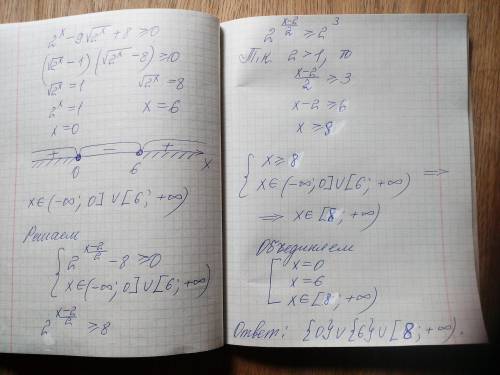 2^x - 9√(2^x) + 8 ≥ 0
(√(2^x) - 1)(√(2^x) - 8) ≥ 0
√(2^x) = 1 √(2^x) = 8
2^x = 1 x = 6
x = 0
+ − +
0 6 x
x ∈ (-∞; 0] ∪ [6; +∞)
Решаем
{ 2^((x-2)/2) - 8 ≥ 0
x ∈ (-∞; 0] ∪ [6; +∞)
2^((x-2)/2) ≥ 8
2^((x-2)/2) ≥ 2^3
Т.к. 2 > 1, то
(x-2)/2 ≥ 3
x - 2 ≥ 6
x ≥ 8
{ x ≥ 8
x ∈ (-∞; 0] ∪ [6; +∞) ⟹
⟹ x ∈ [8; +∞)
Объединяем
[ x = 0
x = 6
x ∈ [8; +∞)
Ответ: {0} ∪ {6} ∪ [8; +∞).